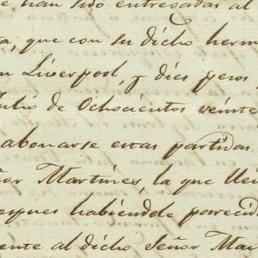 e han sido entregadas al
a, que con su dicho herm
n Liverpool, y dies pesos
Julio de Ochocientos veinte
abonarse estas partidas
ñor Martines, la que lle
eynes habiendole parecido
ente al dicho Señor Mar